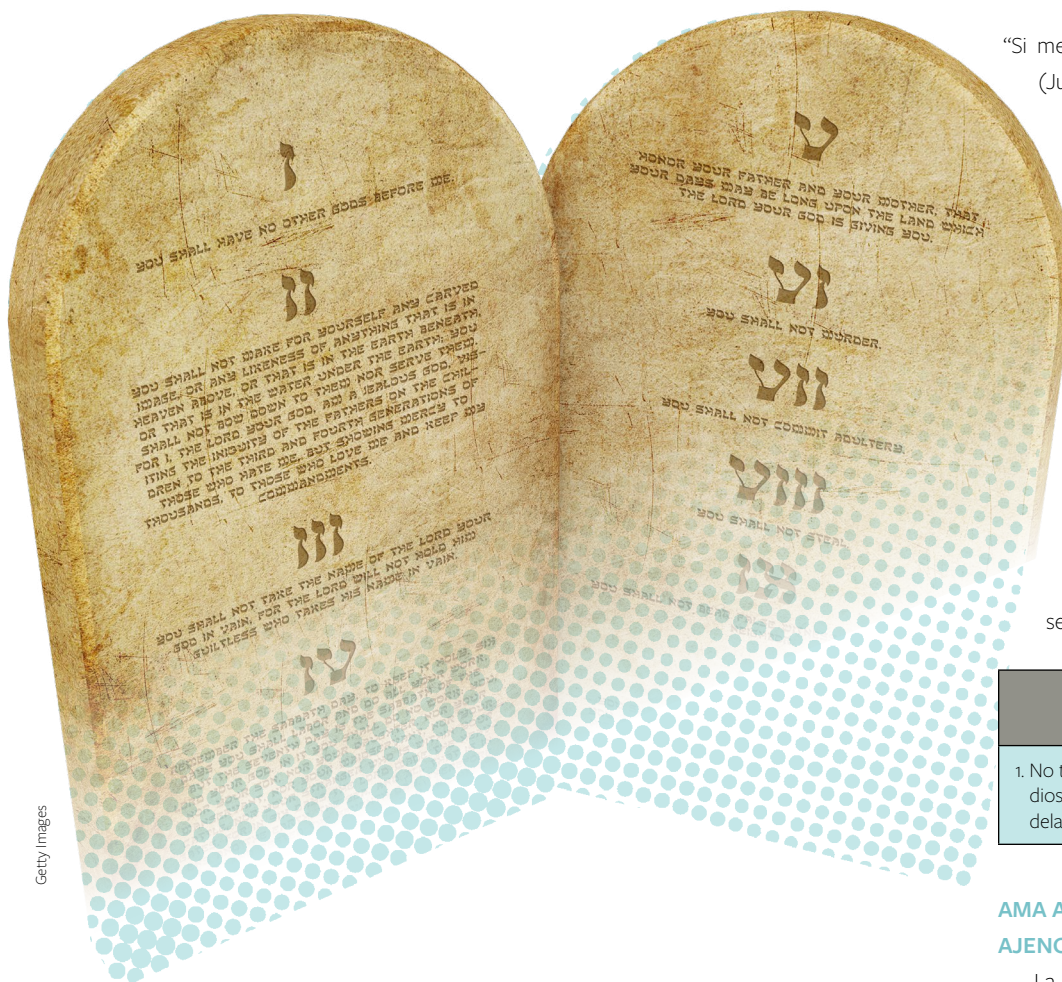 I
YOU SHALL HAVE NO OTHER GODS BEFORE ME.
II
YOU SHALL NOT MAKE FOR YOURSELF ANY CARVED
IMAGE, OR ANY LIKENESS OF ANYTHING THAT IS IN
HEAVEN ABOVE, OR THAT IS IN THE EARTH BENEATH,
OR THAT IS IN THE WATER UNDER THE EARTH; YOU
SHALL NOT BOW DOWN TO THEM NOR SERVE THEM.
FOR I, THE LORD YOUR GOD, AM A JEALOUS GOD, VIS-
ITING THE INIQUITY OF THE FATHERS ON THE CHIL-
DREN TO THE THIRD AND FOURTH GENERATIONS OF
THOSE WHO HATE ME, BUT SHOWING MERCY TO
THOUSANDS, TO THOSE WHO LOVE ME AND KEEP MY
COMMANDMENTS.
III
YOU SHALL NOT TAKE THE NAME OF THE LORD YOUR
GOD IN VAIN, FOR THE LORD WILL NOT HOLD HIM
GUILTLESS WHO TAKES HIS NAME IN VAIN.
IV
REMEMBER THE SABBATH DAY, TO KEEP IT HOLY. SIX
DAYS YOU SHALL LABOR AND DO ALL YOUR WORK,
V
HONOR YOUR FATHER AND YOUR MOTHER, THAT
YOUR DAYS MAY BE LONG UPON THE LAND WHICH
THE LORD YOUR GOD IS GIVING YOU.
VI
YOU SHALL NOT MURDER.
VII
YOU SHALL NOT COMMIT ADULTERY.
VIII
YOU SHALL NOT STEAL
IX
YOU SHALL NOT BEAR
Getty Images
“Si me
(Ju
se
1. No t
dios
dela
AMA A
AJENO
La